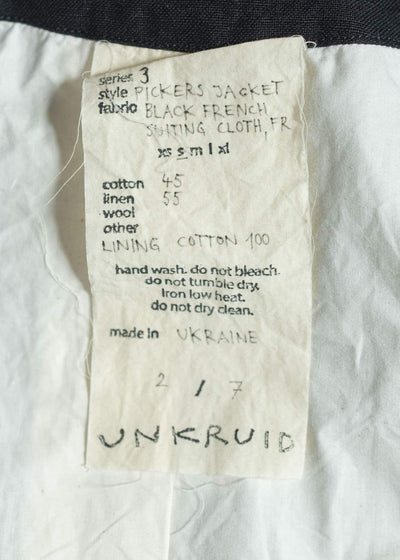 series 3
style PICKERS JACKET
fabric BLACK FRENCH
SUITING CLOTH, FR
xs s m l xl
cotton 45
linen 55
wool
other
LINING COTTON 100
hand wash. do not bleach.
do not tumble dry.
Iron low heat.
do not dry clean.
made in UKRAINE
2 / 7
UNKRUID